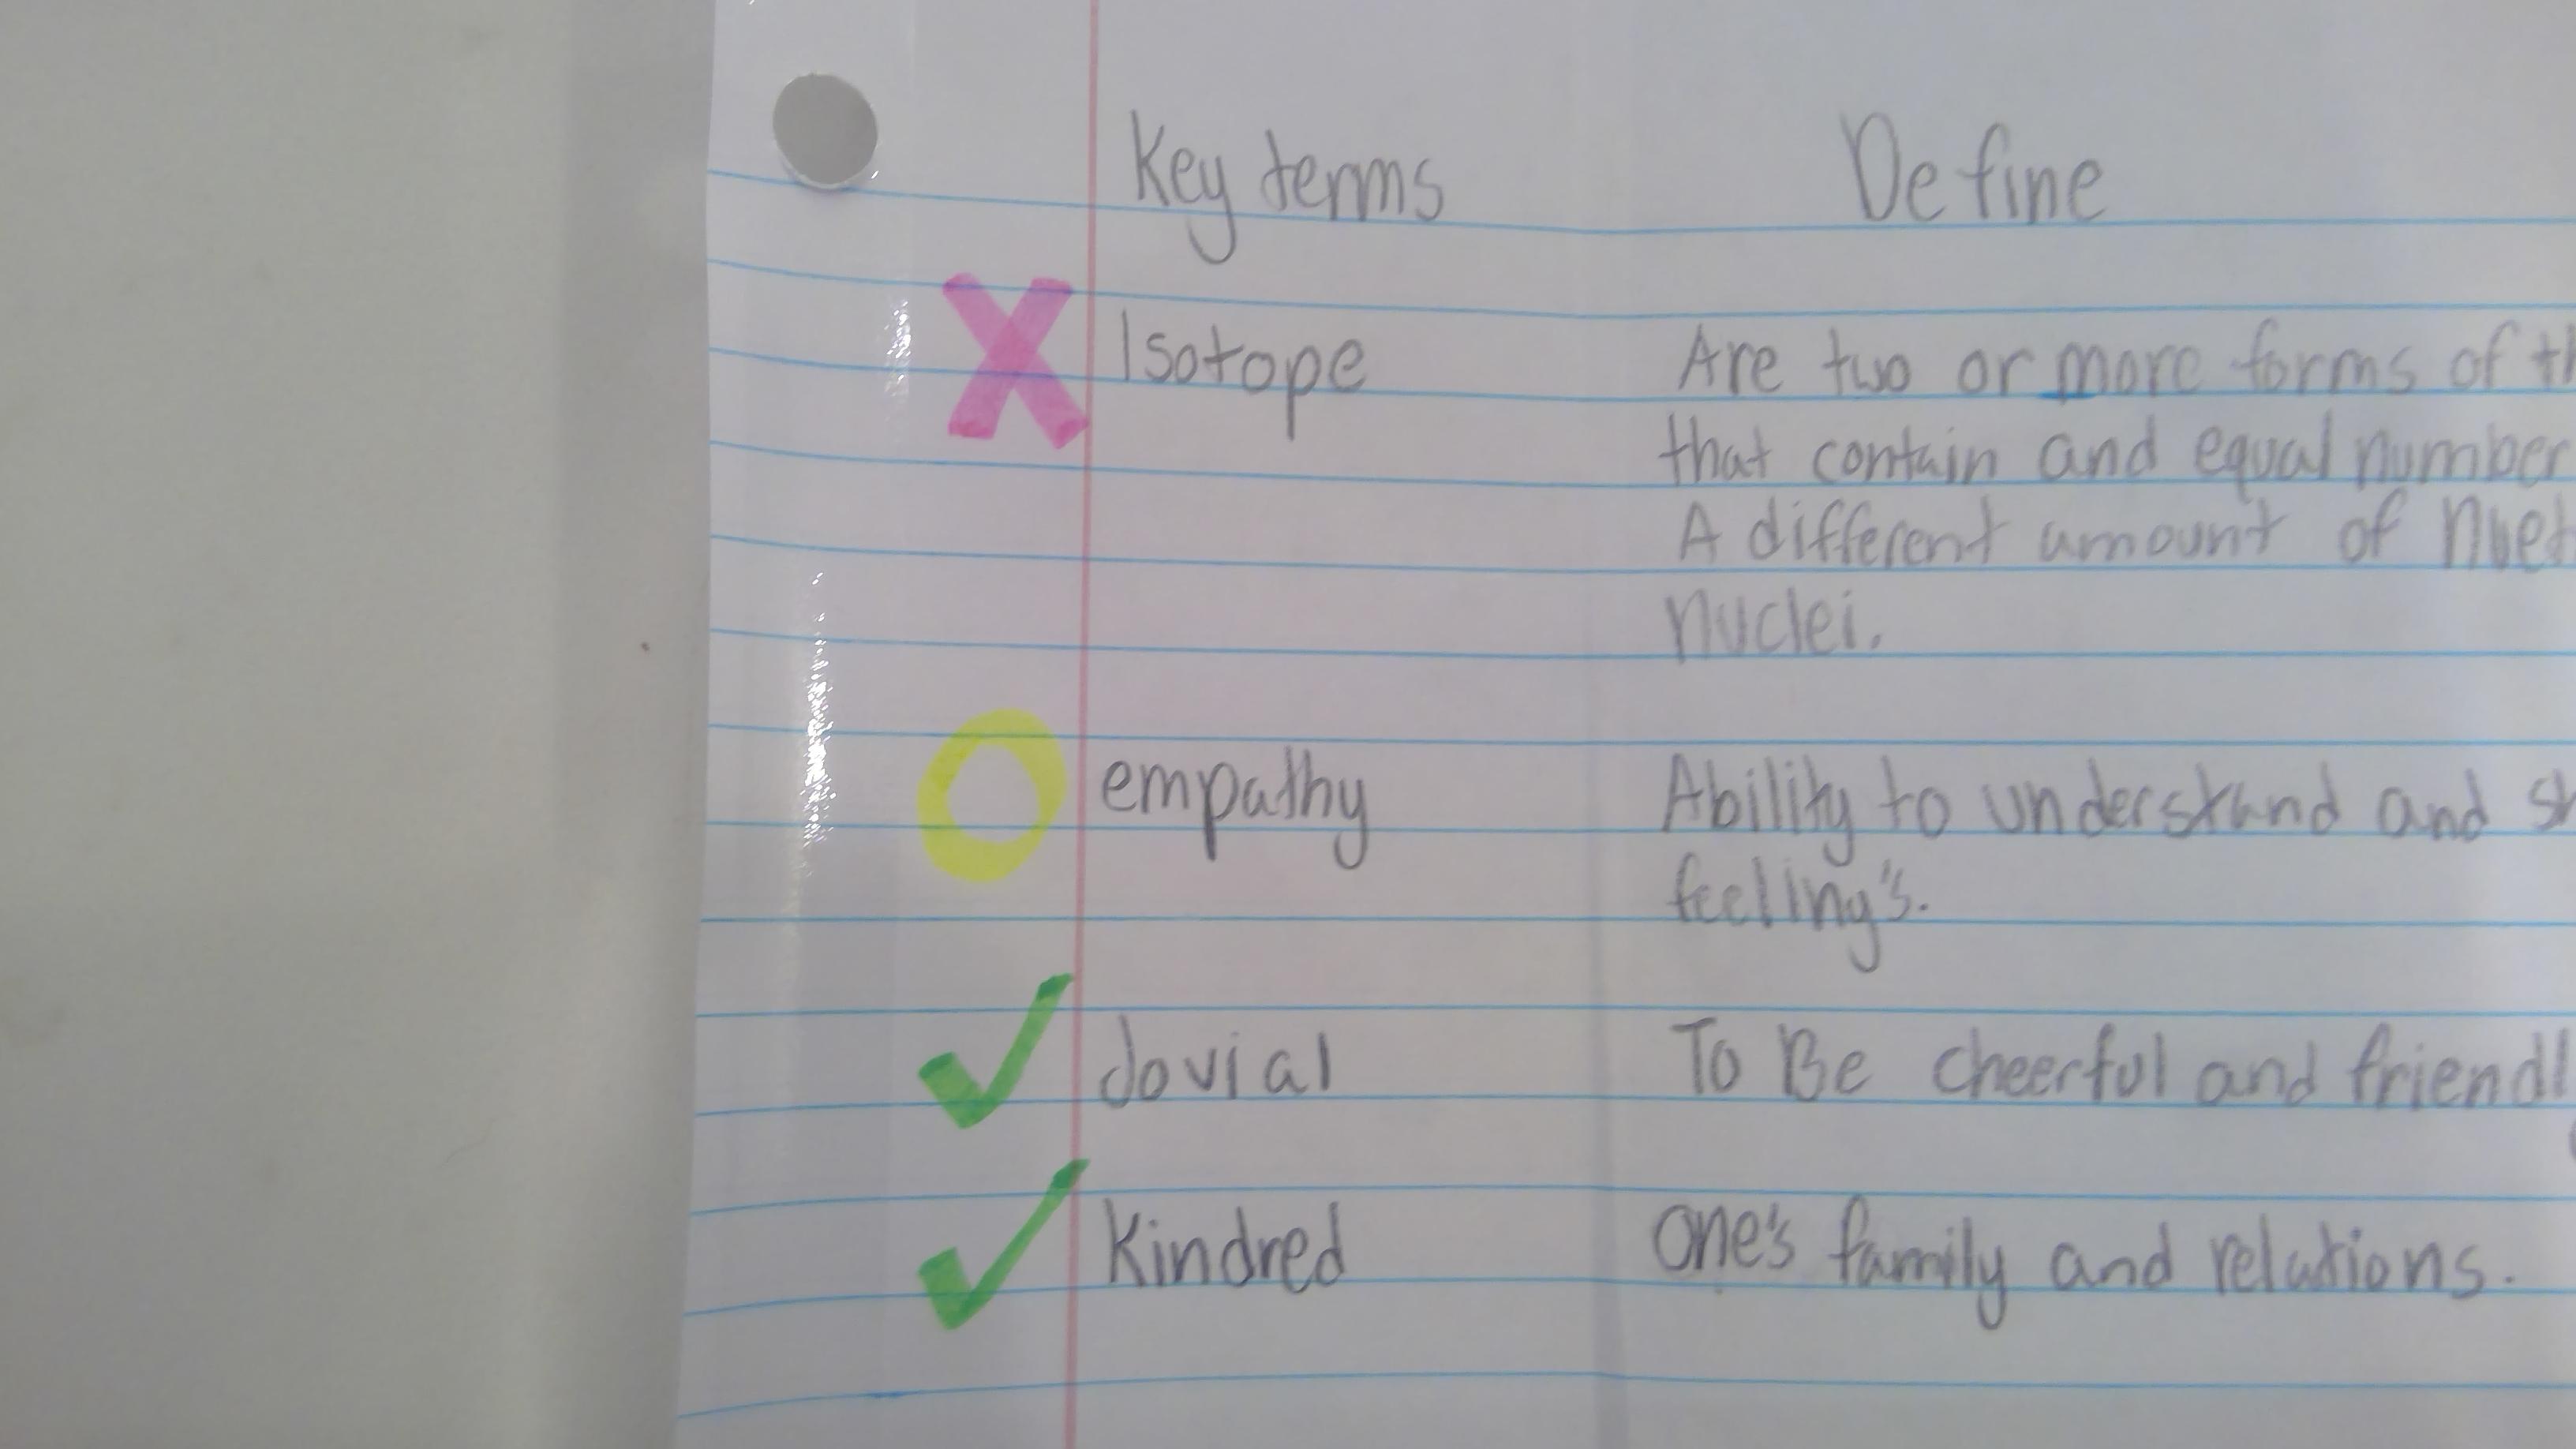 Key terms Define
Isotope Are two or more forms of th
that contain and equal number
A different amount of Nuet
nuclei.
empathy Ability to understand and sh
feeling's.
Jovial To Be cheerful and friendl
Kindred One's family and relations.